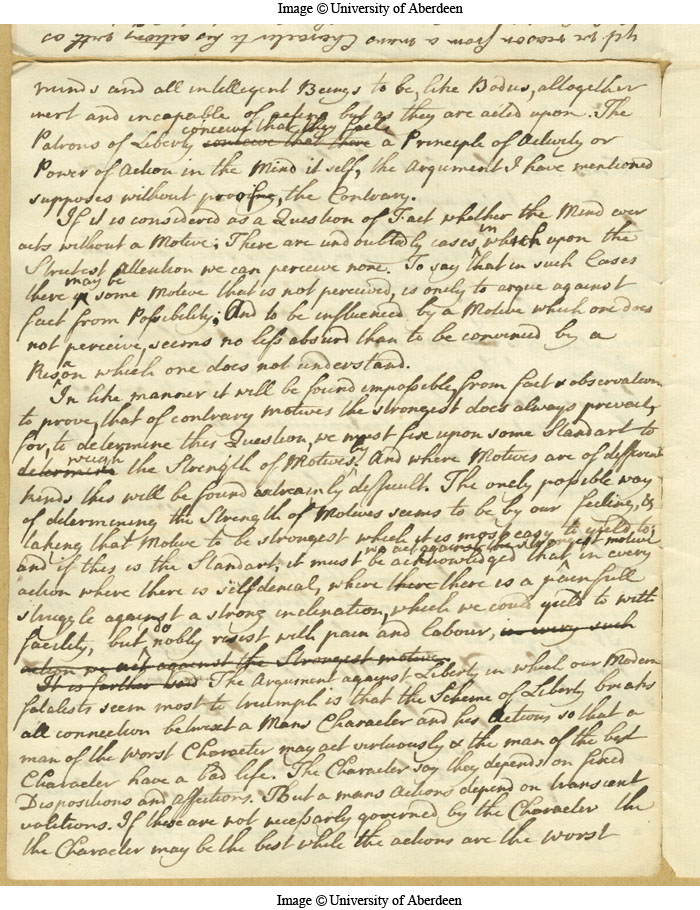 Image © University of Aberdeen
minds and all intelligent Beings to be, like Bodies, altogether
inert and incapable of acting but as they are acted upon. The
conceive that they feele
Patrons of Liberty conceive that there a Principle of Activity or
Power of Action in the Mind it self, the Argument I have mentioned
supposes without proofing, the Contrary.
If it is considered as a Question of Fact whether the Mind ever
acts without a Motive; There are undoubtedly cases in which upon the
Strictest Attention we can perceive none. To say that in such Cases
may be
there is some Motive that is not perceived, is onely to argue against
fact from Possibility; And to be influenced by a Motive which one does
not perceive, seems no less absurd than to be convinced by a
Reason which one does not understand.
In like manner it will be found impossible, from fact & observation
to prove, that of contrary motives the strongest does always prevail,
for, to determine this Question, we must fix upon some Standart to
weigh
determine the Strength of Motives. And where Motives are of different
kinds this will be found extreamly difficult. The onely possible way
of determening the Strength of Motives seems to be by our feeling, &
taking that Motive to be strongest which it is most easy to yield to;
we act against the strongest motive
and if this is the Standart, it must be acknowledged that in every
action where there is selfdenial, where there there is a painfull
struggle against a strong inclination, which we could yield to with
facility, but do nobly resist with pain and labour, in every such
action we act against the Strongest motive.
It is farther said The Argument against Liberty in which our Modern
fatalists seem most to triumph is that the Scheme of Liberty breaks
all connection betwixt a Mans Character and his Actions so that a
man of the worst Character may act virtuously & the man of the best
Character have a bad life. The Character say they depends on fixed
Dispositions and affections. But a mans Actions depend on transient
volitions. If these are not necessarly governed by the Character the
the Character may be the best while the actions are the worst
Image © University of Aberdeen